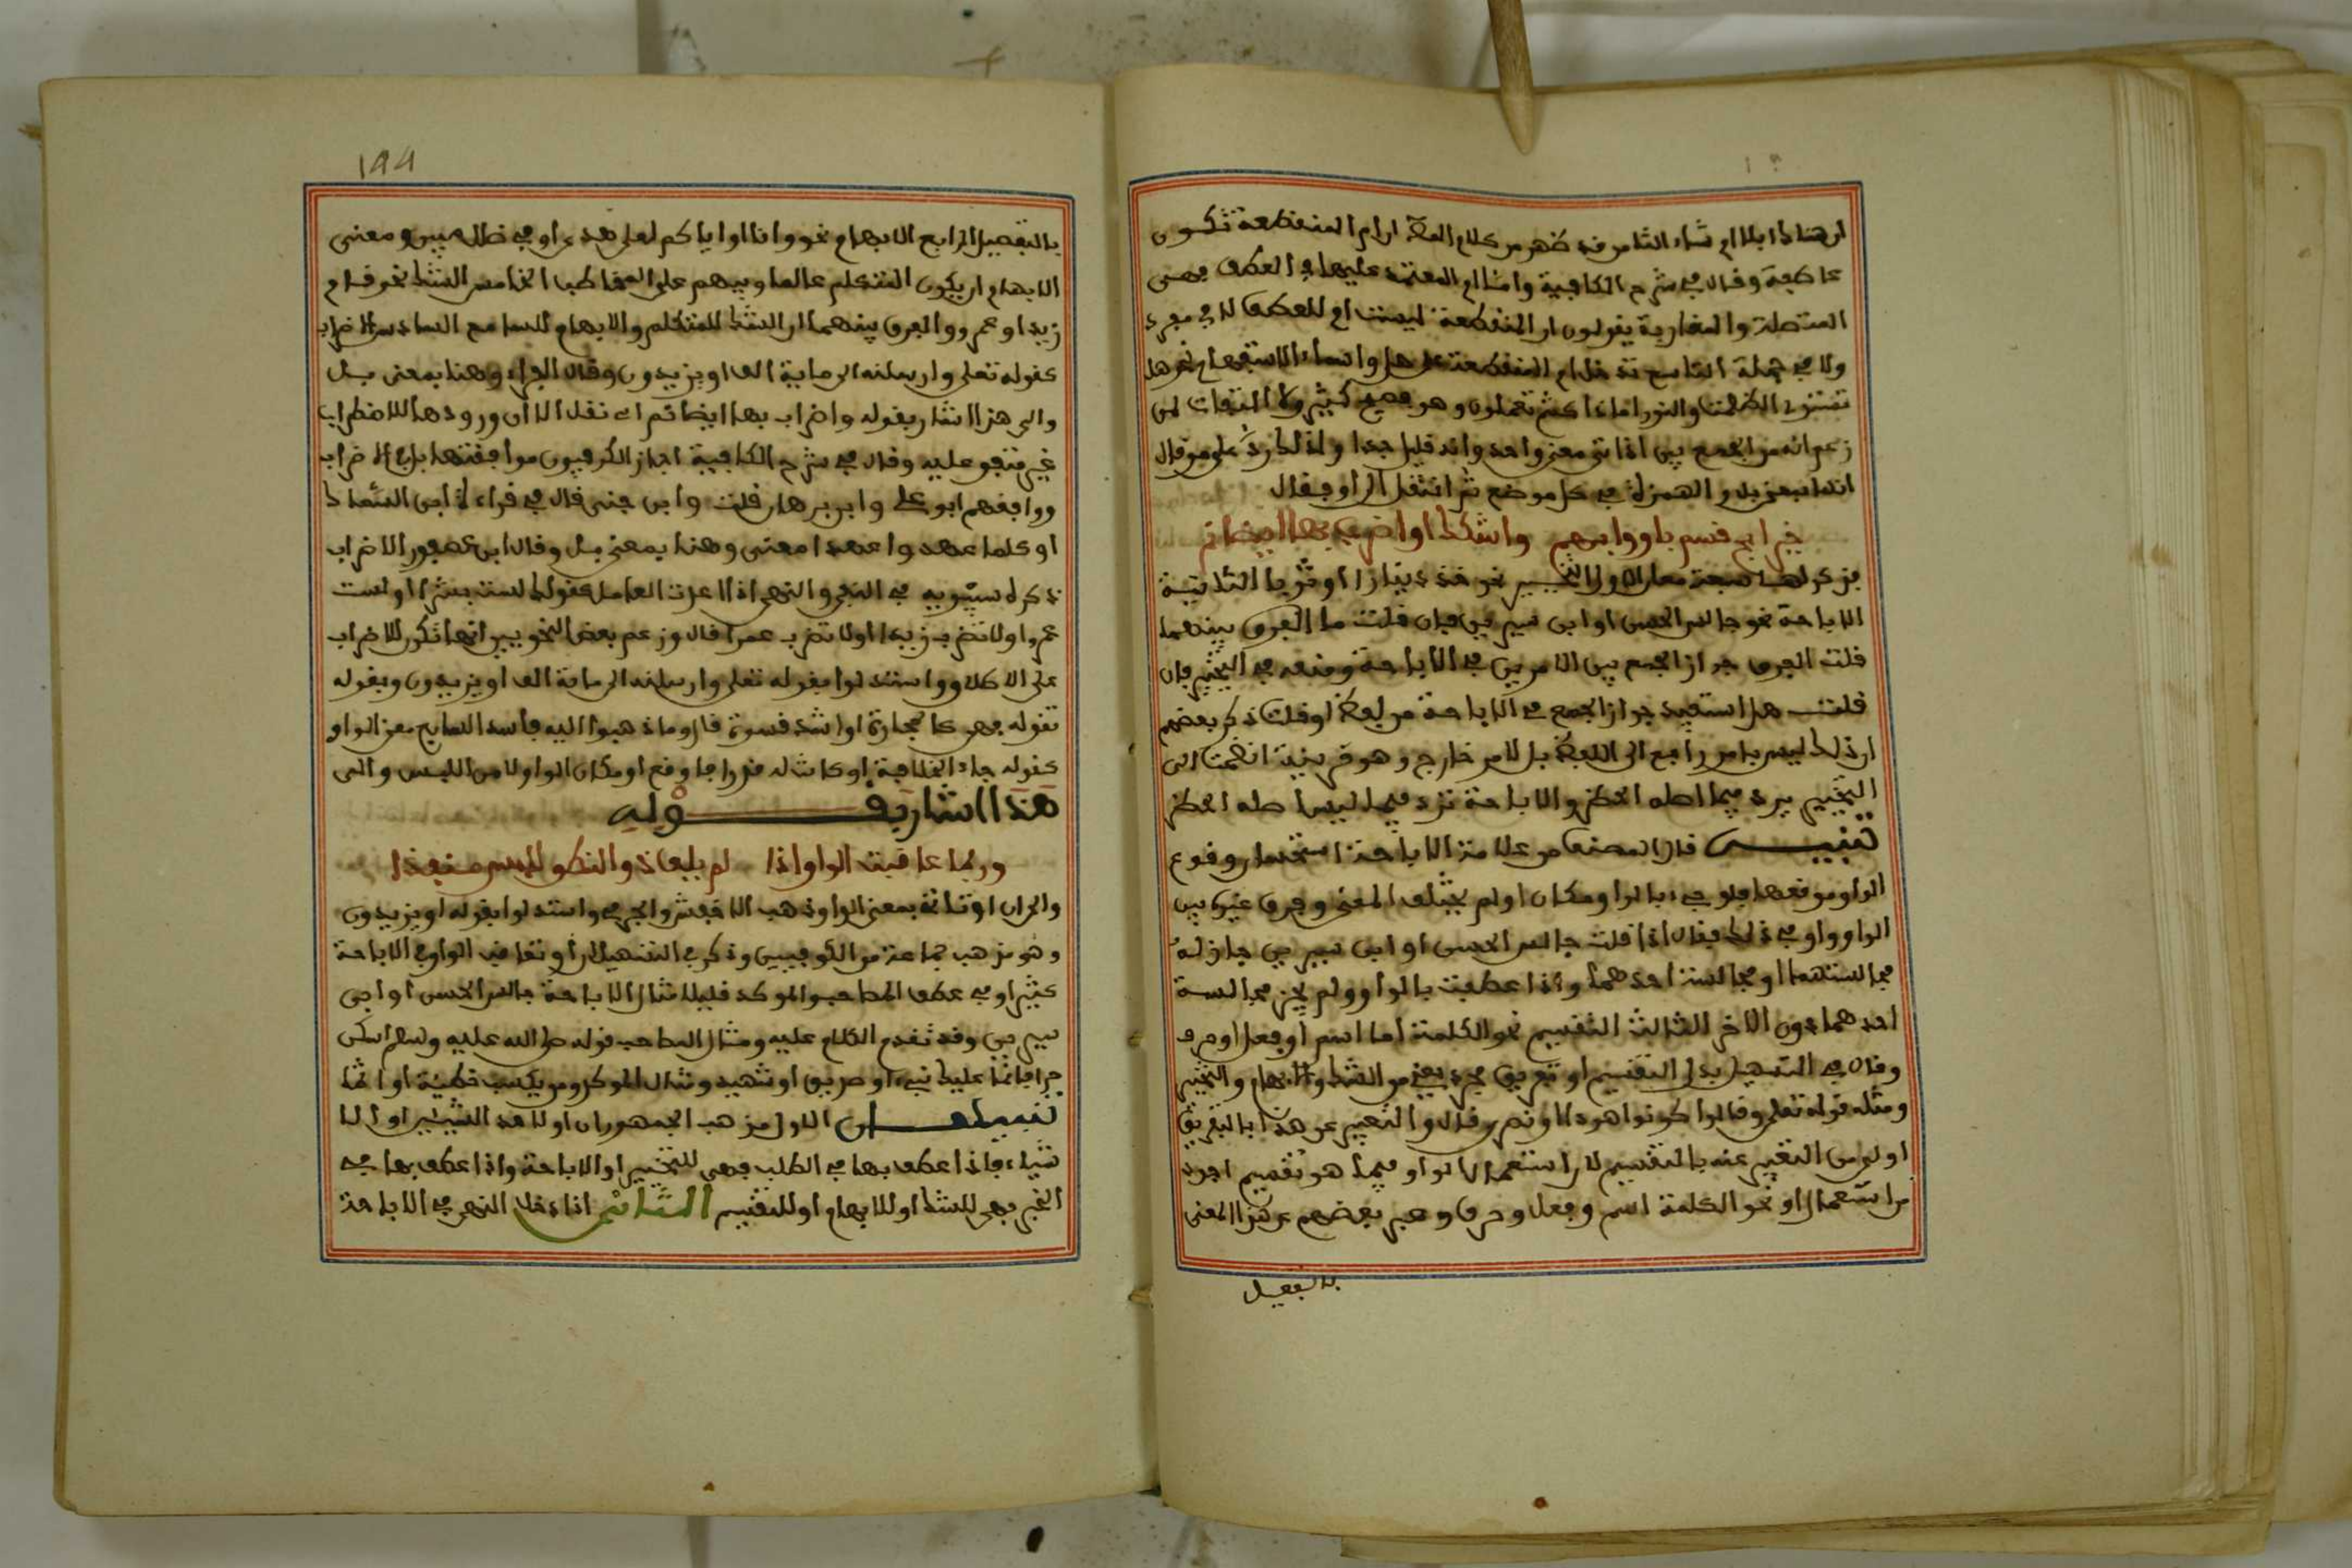 ان هناك ابلا ام شاء الثامن قد ظهر من كلام المص ان ام المنقطعة تكون
عاطفة وقال في شرح الكافية واما ام المعتمد عليها في العطف فهي
المتصلة والمغاربة يقولون ان المنقطعة ليست ام للعطف لا في مفرد
ولا في جملة التاسع تدخل ام المنقطعة على هل واسماء الاستفهام نحو هل
تستوي الظلمت والنور اماذا كنتم تعملون وهو فصيح كثير ولا التفات لمن
زعم انه من الجمع بين اداتي معنى واحد وانه قليل جدا ولذلك رد على من قال
انها بمعنى بل والهمزة في كل موضع ثم انتقل الى او فقال
خير ابح قسم باو وابهم واشكك او اضراب بها ايضا نم
فذكر لها سبعة معان الاول التخيير نحو خذ دينارا او ثوبا الثانية
الاباحة نحو جالس الحسن او ابن سيرين فان قلت ما الفرق بينهما
قلت الفرق جواز الجمع بين الامرين في الاباحة ومنعه في التخيير فان
قلت هل استفيد جواز الجمع في الاباحة من لفظ او قلت ذكر بعضهم
ان ذلك ليس بامر راجع الى اللفظ بل لامر خارج وهو قرينة انضمت الى
التخيير يرد فيما اصله الحظر والاباحة ترد فيما ليس اصله الحظر
تنبيـــه قال المصنف من علامة الاباحة استحسان وقوع
الواو موقعها فلو جيء بالواو مكان او لم يختلف المعنى وفرق غيره بين
الواو واو في ذلك فقال اذا قلت جالس الحسن او ابن سيرين جاز له
مجالستهما او مجالسة احدهما واذا عطفت بالواو لم يجز مجالسة
احدهما دون الاخر الثالث التقسيم نحو الكلمة اما اسم او فعل او حرف
وقال في التسهيل بدل التقسيم او تفريق مجرد يعني من الشك والابهام والتخيير
ومثله قوله تعلى وقالوا كونوا هودا او نصرى قال والتعبير عن هذا بالتفريق
اولى من التعبير عنه بالتقسيم لان استعمال الواو فيما هو تقسيم اجود
من استعمال او نحو الكلمة اسم وفعل وحرف وعبر بعضهم عن هذا المعنى
بالتفصيل
١٩٩
بالتفصيل الرابع الابهام نحو وانا او اياكم لعلى هدى او في ضلل مبين ومعنى
الابهام ان يكون المتكلم عالما ويبهم على المخاطب الخامس الشك نحو قام
زيد او عمرو والفرق بينهما ان الشك للمتكلم والابهام للسامع السادس الاضراب
كقوله تعلى وارسلنه الى ماية الف او يزيدون وقال الفراء وهنا بمعنى بل
والى هذا اشار بقوله واضراب بها ايضا نم اي نقل الا ان ورودها للاضطراب
غير متفق عليه وقال في شرح الكافية اجاز الكوفيون موافقتها بل في الاضراب
ووافقهم ابو علي وابن برهان قلت وابن جني قال في قراءة ابن السماك
او كلما عهدوا عهدا معنى وهنا بمعنى بل وقال ابن عصفور الاضراب
ذكره سيبويه في النفي والنهي اذا اعدت العامل كقولك لست بشرا او لست
عمرا ولا تضرب زيدا او لا تضرب عمرا قال وزعم بعض النحويين انها تكون للاضراب
على الاطلاق واستدلوا بقوله تعلى وارسلنه الى ماية الف او يزيدون وبقوله
تقوله فهي كالحجارة او اشد قسوة قال وما ذهبوا اليه فاسد السابع معنى الواو
كقوله جاء الخلافة او كانت له قدرا فاوقع او مكان الواو لامن اللبس والى
هذا اشار بقـــوله
وربما عاقبت الواو اذا لم يلف ذو النطق للبس منفذا
والى ان او تاتي بمعنى الواو ذهب الاخفش والجرمي واستدلوا بقوله او يزيدون
وهو مذهب جماعة من الكوفيين وذكر في التسهيل ان او تعاقب الواو في الاباحة
كثيرا وفي عطف المصاحب والموكد قليلا مثال الاباحة جالس الحسن او ابن
سيرين وقد تقدم الكلام عليه ومثال المصاحب قوله صلى الله عليه وسلم اسكن
حرا فانما عليك نبيء او صديق او شهيد ومثال الموكد ومن يكسب خطيئة او اثما
تنبيهـــان الاول مذهب الجمهور ان او لاحد الشيئين او الا
شياء فاذا عطف بها في الطلب فهي للتخيير او الاباحة واذا عطف بها في
الخبر فهي للشك او للابهام او للتقسيم الثاني اذا دخل النهي في الاباحة